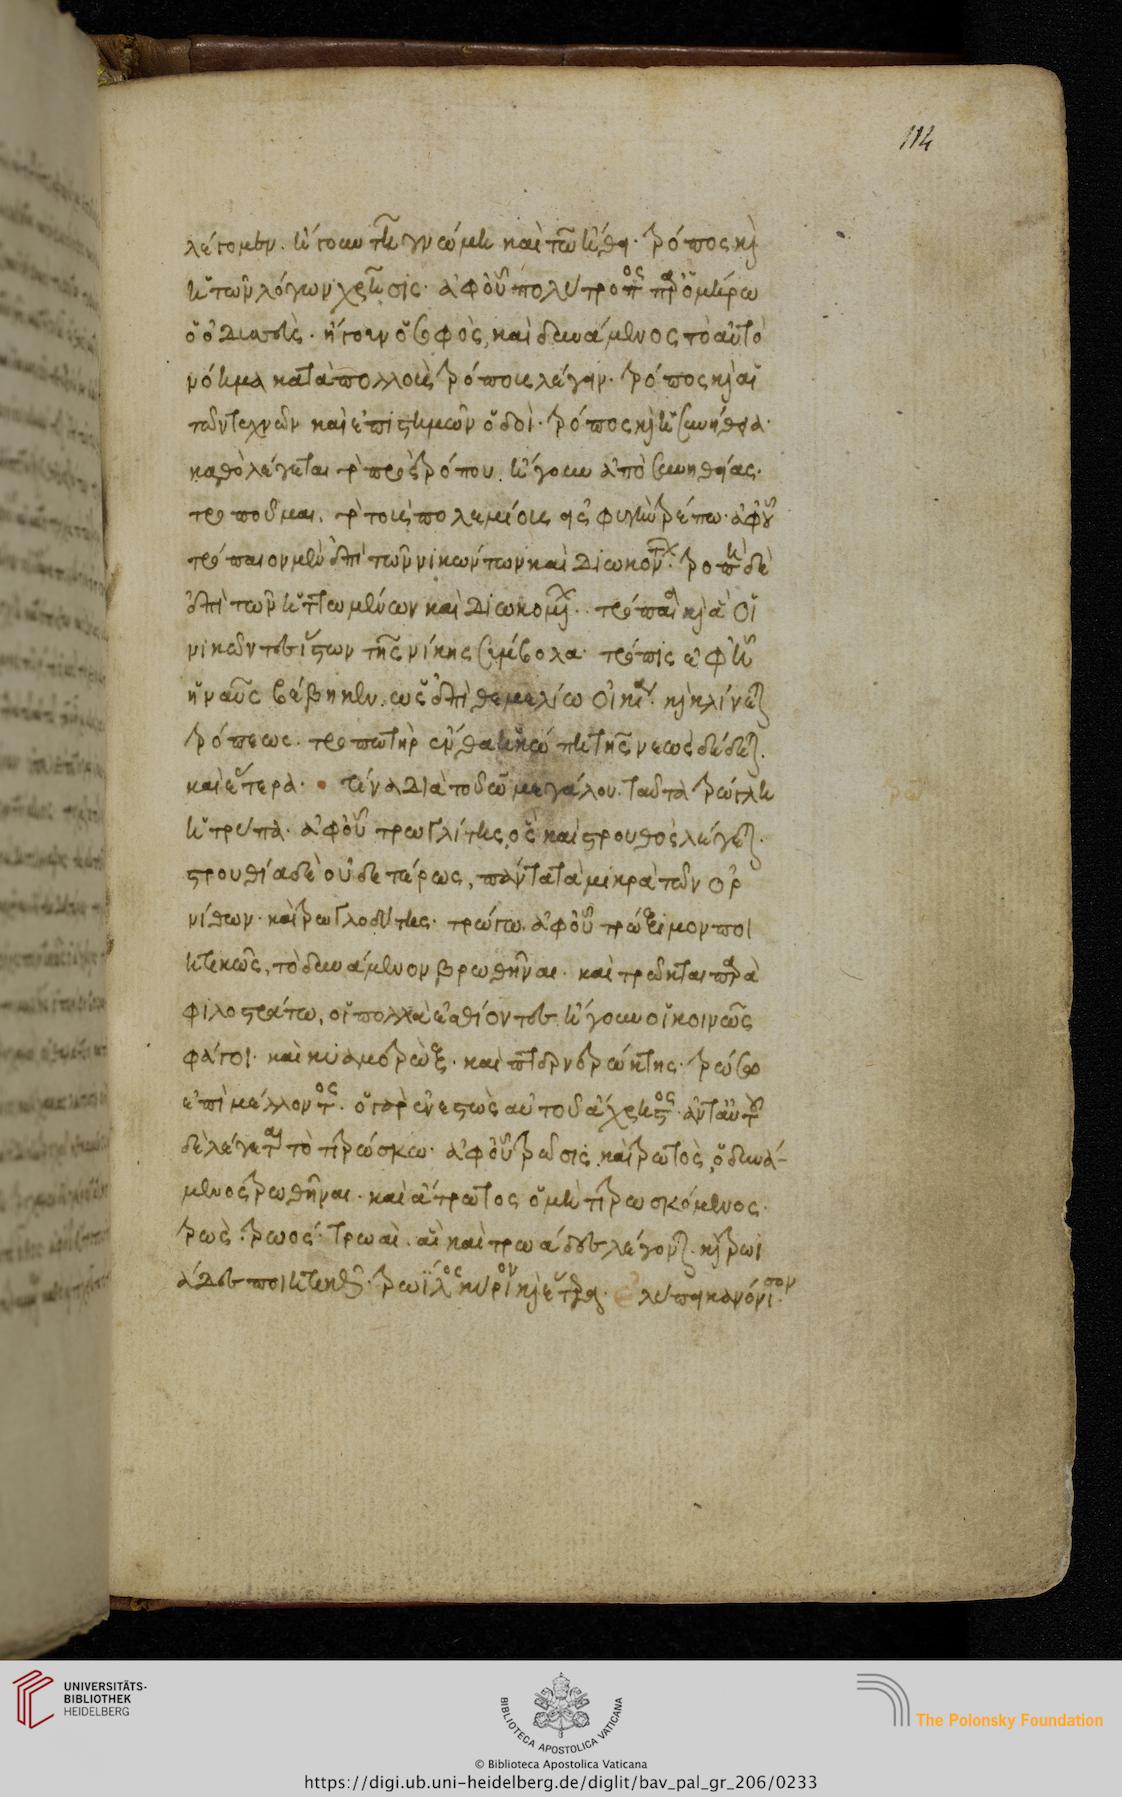 114
λέγομεν. ἤγουν τῆ γνώμη καὶ τῶ ἤθει· τρόπος καὶ
ἡ τῶν λόγων χρῆσις· ἀφ' οὗ πολύτροπος παρ' ὁμήρω
ὁ ὀδυσσεὺς· ἤγουν ὁ σοφὸς, καὶ δυνάμενος τὸ αὐτὸ
νόημα κατὰ πολλοὺς τρόπους λέγειν· τρόπος καὶ αἱ
τῶν τεχνῶν καὶ ἐπιστημῶν ὁδοὶ· τρόπος καὶ ἡ συνήθεια·
καθὸ λέγεται τὸ πρὸς τρόπου. ἤγουν ἀπὸ συνηθείας·
τροποῦμαι. τὸ τοὺς πολεμίους εἰς φυγὴν τρέπω· ἀφ' οὗ
τρόπαιον μὲν ἐπὶ τῶν νικώντων καὶ διωκόντων· τροπὴ δὲ
ἐπὶ τῶν ἡττωμένων καὶ διωκομένων· τρόπαια καὶ ἃ οἱ
νικῶντες ἵστων τῆς νίκης σύμβολα· τρόπις ἐφ' ἧ
ἡ ναῦς βέβηκεν. ὡς ἐπὶ θεμελίω οἰκία· καὶ κλίνεται
τρόπεως· τροπωτὴρ ἔνθα ἡ κώπη τῆς νεὼς δέδεται.
καὶ ἕτερα· τίνα διὰ τοῦ ω μεγάλου. ταῦτα τρώγλη
ἡ τρύπα· ἀφ' οὗ τρωγλίτης, ὃς καὶ στρουθὸς λέγεται·
στρουθία δὲ οὐδετέρως, πάντα τὰ μικρὰ τῶν ὀρ
νίθων· καὶ τρωγλοδύτης· τρώγω. ἀφ' οὗ τρώξιμον ποι
ητικῶς, τὸ δυνάμενον βρωθῆναι· καὶ τρῶκται παρὰ
φιλοστράτω, οἱ πολλὰ ἐσθίοντες ἤγουν οἱ κοινῶς
φάγοι· καὶ κυαμοτρὼξ· καὶ πτερνοτρώκτης· τρώσω
ἐπὶ μέλλοντος. ὁ γὰρ ἐνεστὼς αὐτοῦ ἄχρηστος· ἀντ' αὐτοῦ
δὲ λέγεται τὸ τιτρώσκω· ἀφ' οὗ τρῶσις καὶ τρωτὸς, ὁ δυνά-
μενος τρωθῆναι· καὶ ἄτρωτος ὁ μὴ τιτρωσκόμενος·
τρὼς· τρωός· τρωαὶ. αἳ καὶ τρωάδες λέγονται. καὶ τρωϊ
άδες ποιητικῶς· τρωΐλος κύριον καὶ ἕτερα· λύπη κανόνισον·
UNIVERSITÄTS-
BIBLIOTHEK
HEIDELBERG
BIBLIOTECA APOSTOLICA VATICANA
The Polonsky Foundation
© Biblioteca Apostolica Vaticana
https://digi.ub.uni-heidelberg.de/diglit/bav_pal_gr_206/0233